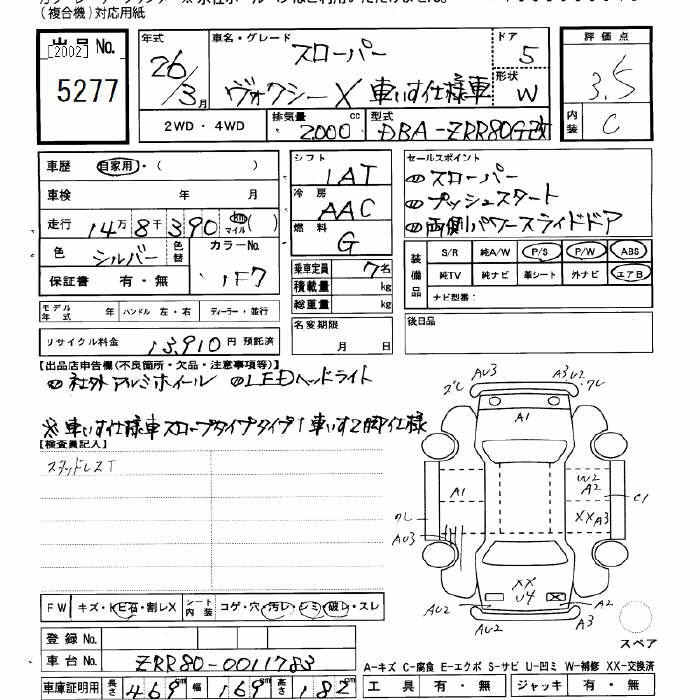 (複合機)対応用紙
出品No.
[2002]
5277
年式 26/3月
車名・グレード スローパー
ヴォクシーX 車いす仕様車
ドア 5
形状 W
2WD・4WD
排気量 2000 cc
型式 DBA-ZRR80G改
評価点 3.5
内装 C
車歴 自家用・( )
車検 年 月
走行 14万8千390 km マイル ( )
色 シルバー 色替 カラーNo. 1F7
保証書 有・無
シフト IAT
冷房 AAC
燃料 G
乗車定員 7名
積載量 kg
総重量 kg
名変期限 月 日
セールスポイント
スローパー
プッシュスタート
両側パワースライドドア
装備品 S/R 純A/W P/S P/W ABS
純TV 純ナビ 革シート 外ナビ エアB
ナビ型番:
後日品
モデル年式 年 ハンドル 左・右 ディーラー・並行
リサイクル料金 13,910円 預託済
【出品店申告欄(不良箇所・欠品・注意事項等)】
社外アルミホイール LEDヘッドライト
※車いす仕様車スロープタイプタイプ1車いす2脚仕様
【検査員記入】
スタッドレスT
AU3
A3 U2
クレ
A1
A1
W2
A2
XX A3
C1
クレ
AU3
XX
U4
AU2
AU2
A2
A3
スペア
FW キズ・ヒ石・割レX シート内装 コゲ・穴・汚レ・シミ・破レ・スレ
登録No.
車台No. ZRR80-0011783
車庫証明用 長さ 469cm 幅 169cm 高さ 182cm
A-キズ C-腐食 E-エクボ S-サビ U-凹ミ W-補修 XX-交換済
工具 有・無 ジャッキ 有・無